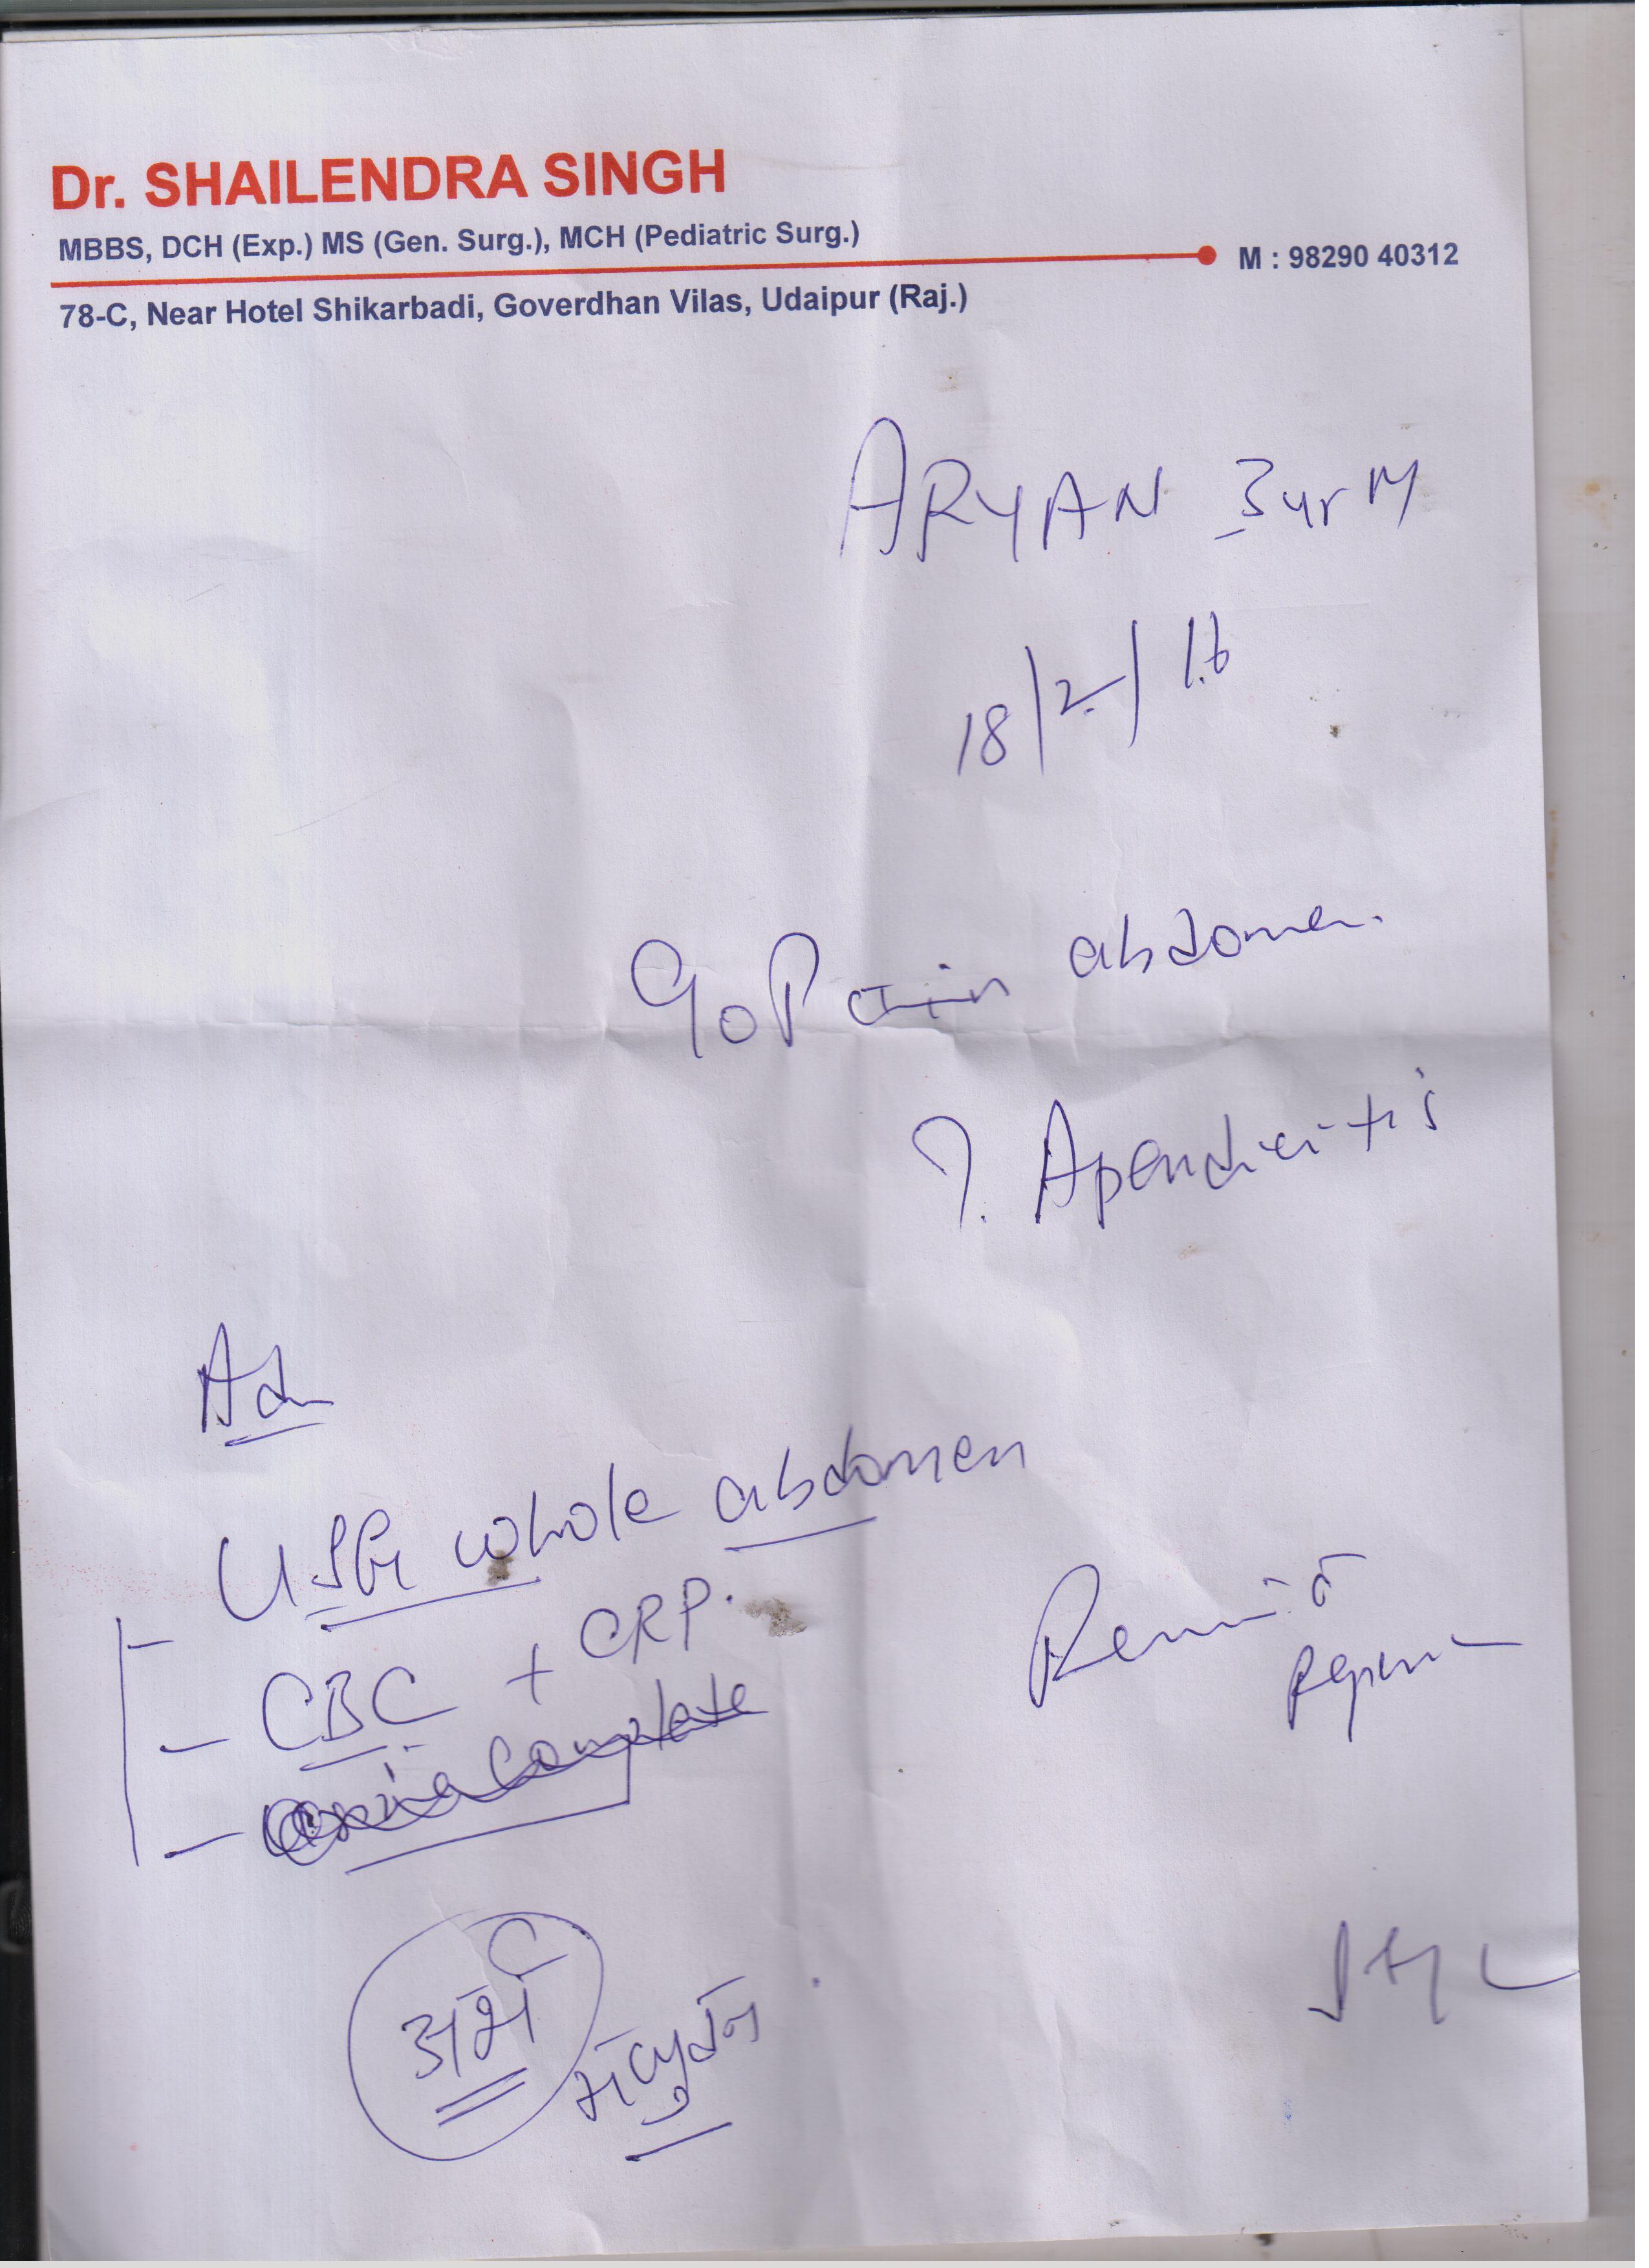 Dr. SHAILENDRA SINGH
MBBS, DCH (Exp.) MS (Gen. Surg.), MCH (Pediatric Surg.)
M : 98290 40312
78-C, Near Hotel Shikarbadi, Goverdhan Vilas, Udaipur (Raj.)
ARYAN 3yr M
18/2/16
Pain abdomen.
?. Apendicitis
Ad
USG whole abdomen
- CBC + CRP.
- Complete